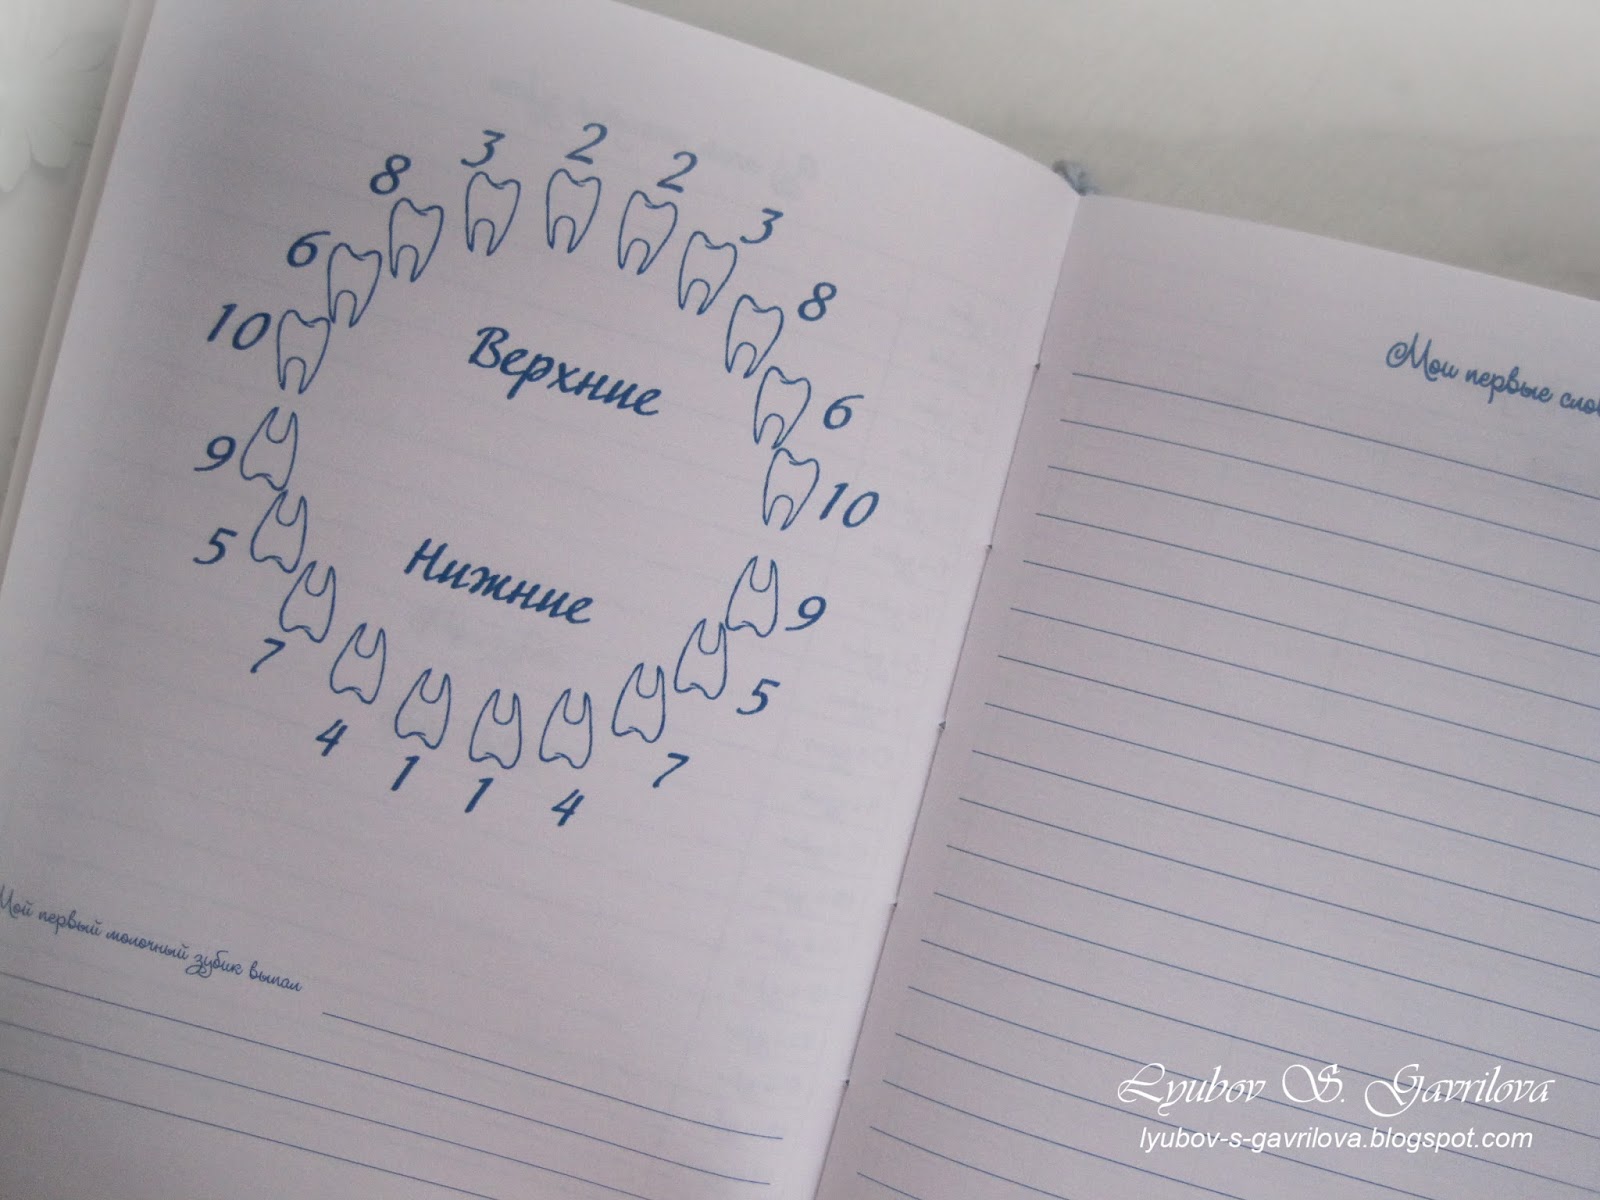 2 2
3 3
8 8
6 6
10 10
Верхние
9 9
5 5
Нижние
7 7
4 4
1 1
Мой первый молочный зубик выпал
Мои первые
Lyubov S. Gavrilova
lyubov-s-gavrilova.blogspot.com